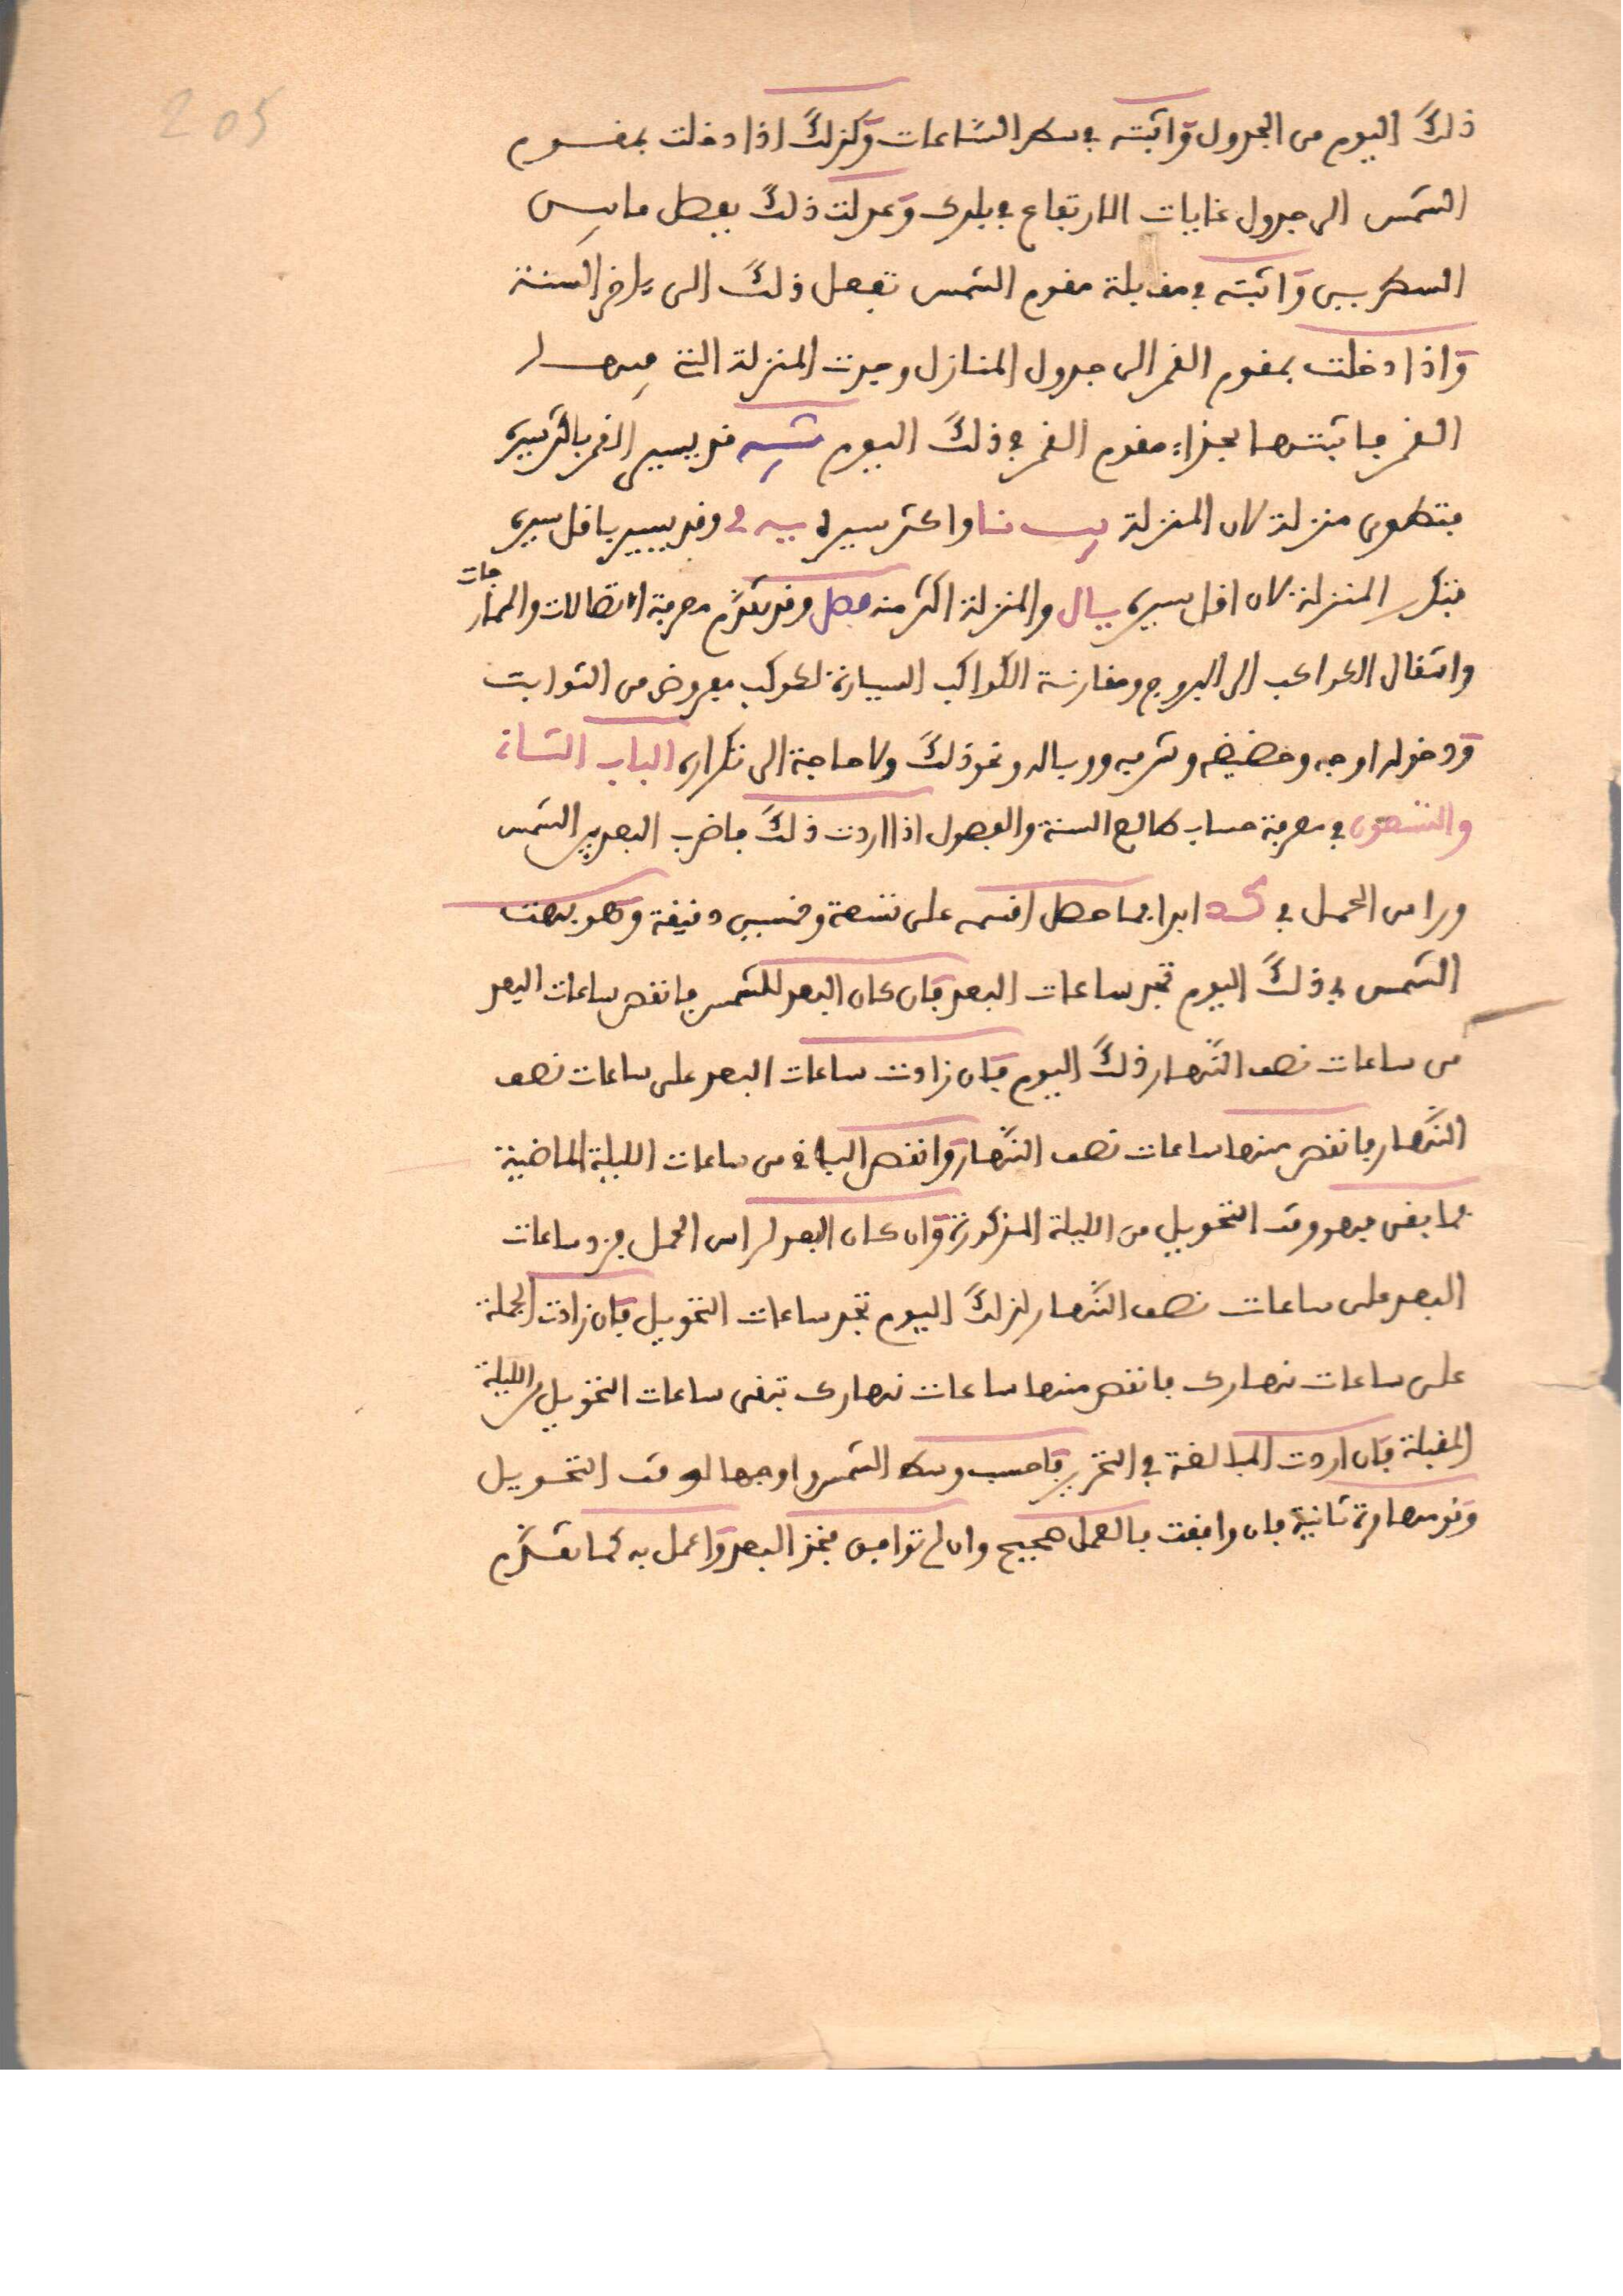 205
ذلك اليوم من الجدول واثبته في سطر الساعات وكذلك اذا دخلت بمقوم
الشمس الى جدول غايات الارتفاع في بلدك وعدلت ذلك بفضل ما بين
السطرين واثبته في مقابلة مقوم الشمس تفعل ذلك الى ءاخر السنة
واذا دخلت بمقوم القمر الى جدول المنازل وجدت المنزلة التي فيها
القمر فاثبتها بحذاء مقوم القمر في ذلك اليوم تنبيه قد يسير القمر باكثر سيره
فتطوى منزلة لان المنزلة يب نا واكثر سيره يه وقد يسير باقل سيره
فتكرر المنزلة لان اقل سيره يا ل والمنزلة اكثر منه فصل وقد تقدم معرفة اتصالات والممازجات
وانتقال الكواكب الى البروج ومقارنة الكواكب السيارة لكوكب معروض من الثوابت
ودخوله اوجه وحضيضه وشرفه ووباله ونحو ذلك ولا حاجة الى تكراره الباب الثاني
والتسعون في معرفة حساب طالع السنة والفصول اذا اردت ذلك فاضرب البعد بين الشمس
وراس الحمل في كد ابدا فما حصل اقسمه على تسعة وخمسين دقيقة وهو بهت
الشمس في ذلك اليوم تخرج ساعات البعد فان كان البعد للشمس فانقص ساعات البعد
من ساعات نصف النهار ذلك اليوم فان زادت ساعات البعد على ساعات نصف
النهار فانقص منها ساعات نصف النهار وانقص الباقي من ساعات الليلة الماضية
فما بقى فهو وقت التحويل من الليلة المذكورة وان كان البعد لراس الحمل فزد ساعات
البعد على ساعات نصف النهار لذلك اليوم تجد ساعات التحويل فان زادت الجملة
على ساعات نهارك فانقص منها ساعات نهارك تبقى ساعات التحويل من الليلة
المقبلة فان اردت المبالغة في التحرير فاحسب وسط الشمس واوجها لوقت التحويل
وقومها مرة ثانية فان وافقت فالعمل صحيح وان لم توافق فخذ البعد واعمل به كما تقدم